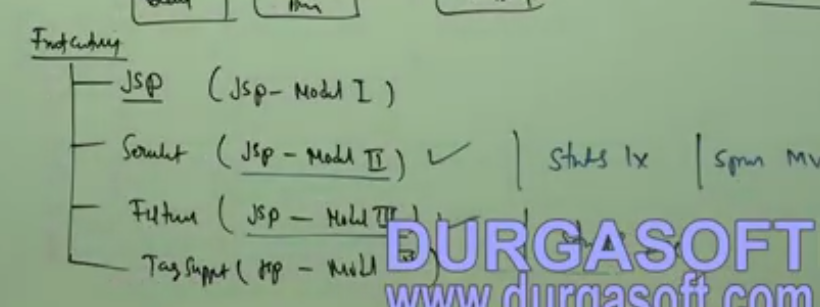 JSP (JSP - Model I)
Servlet (JSP - Model II) ✓ | Struts 1x | Spring MV
Filter (JSP - Model III) ✓ |
TagSupport (JSP - Model
DURGASOFT
www.durgasoft.com